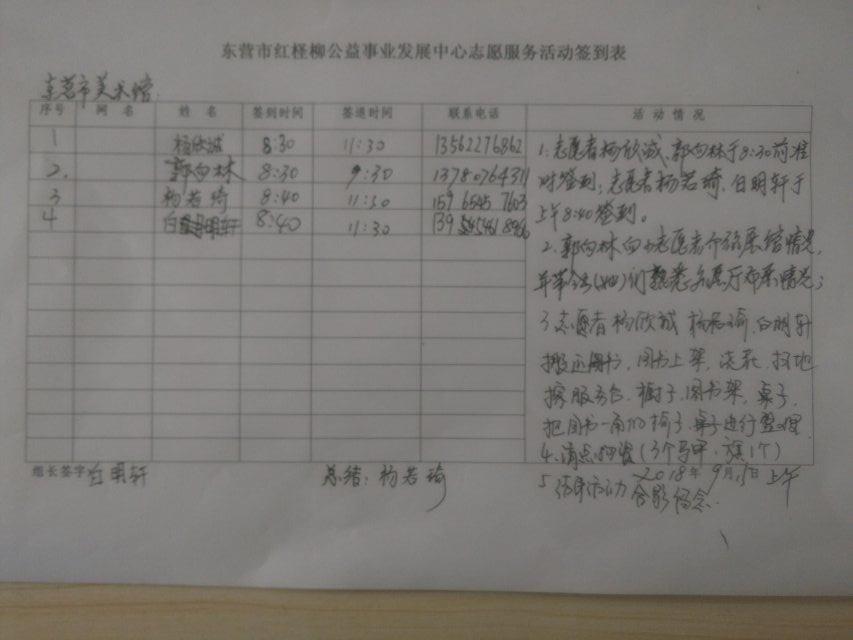 东营市红柽柳公益事业发展中心志愿服务活动签到表
东营市美术馆
序号 网名 姓名 签到时间 签退时间 联系电话 活动情况
1 杨欣诚 8:30 11:30 13562276862
2. 郭向林 8:30 9:30 13780764311
3 杨若琦 8:40 11:30 159 6545 7603
4 白明轩 8:40 11:30
1.志愿者杨欣诚、郭向林于8:30前准
时签到;志愿者杨若琦、白明轩于
上午8:40签到。
2.郭向林向小志愿者介绍展馆情况,
并带令他(她)们熟悉各展厅布展情况;
3志愿者杨欣诚 杨若琦、白明轩
搬运图书、图书上架、浇花、扫地
擦服务台、椅子、图书架、桌子、
把图书一角的椅子、桌子进行整理
4、清点物资(3个马甲、旗1个)
5 结束活动 合影留念.
组长签字 白明轩 总结:杨若琦 2018年9月15日上午